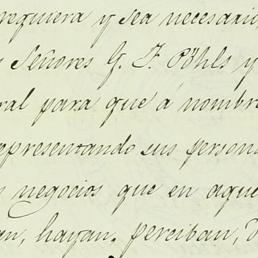 requiera y sea necesario,
Señores G. J. Pöhls y
ral para que á nombre
representando sus person
negocios que en aque
an, hayan. perciban,